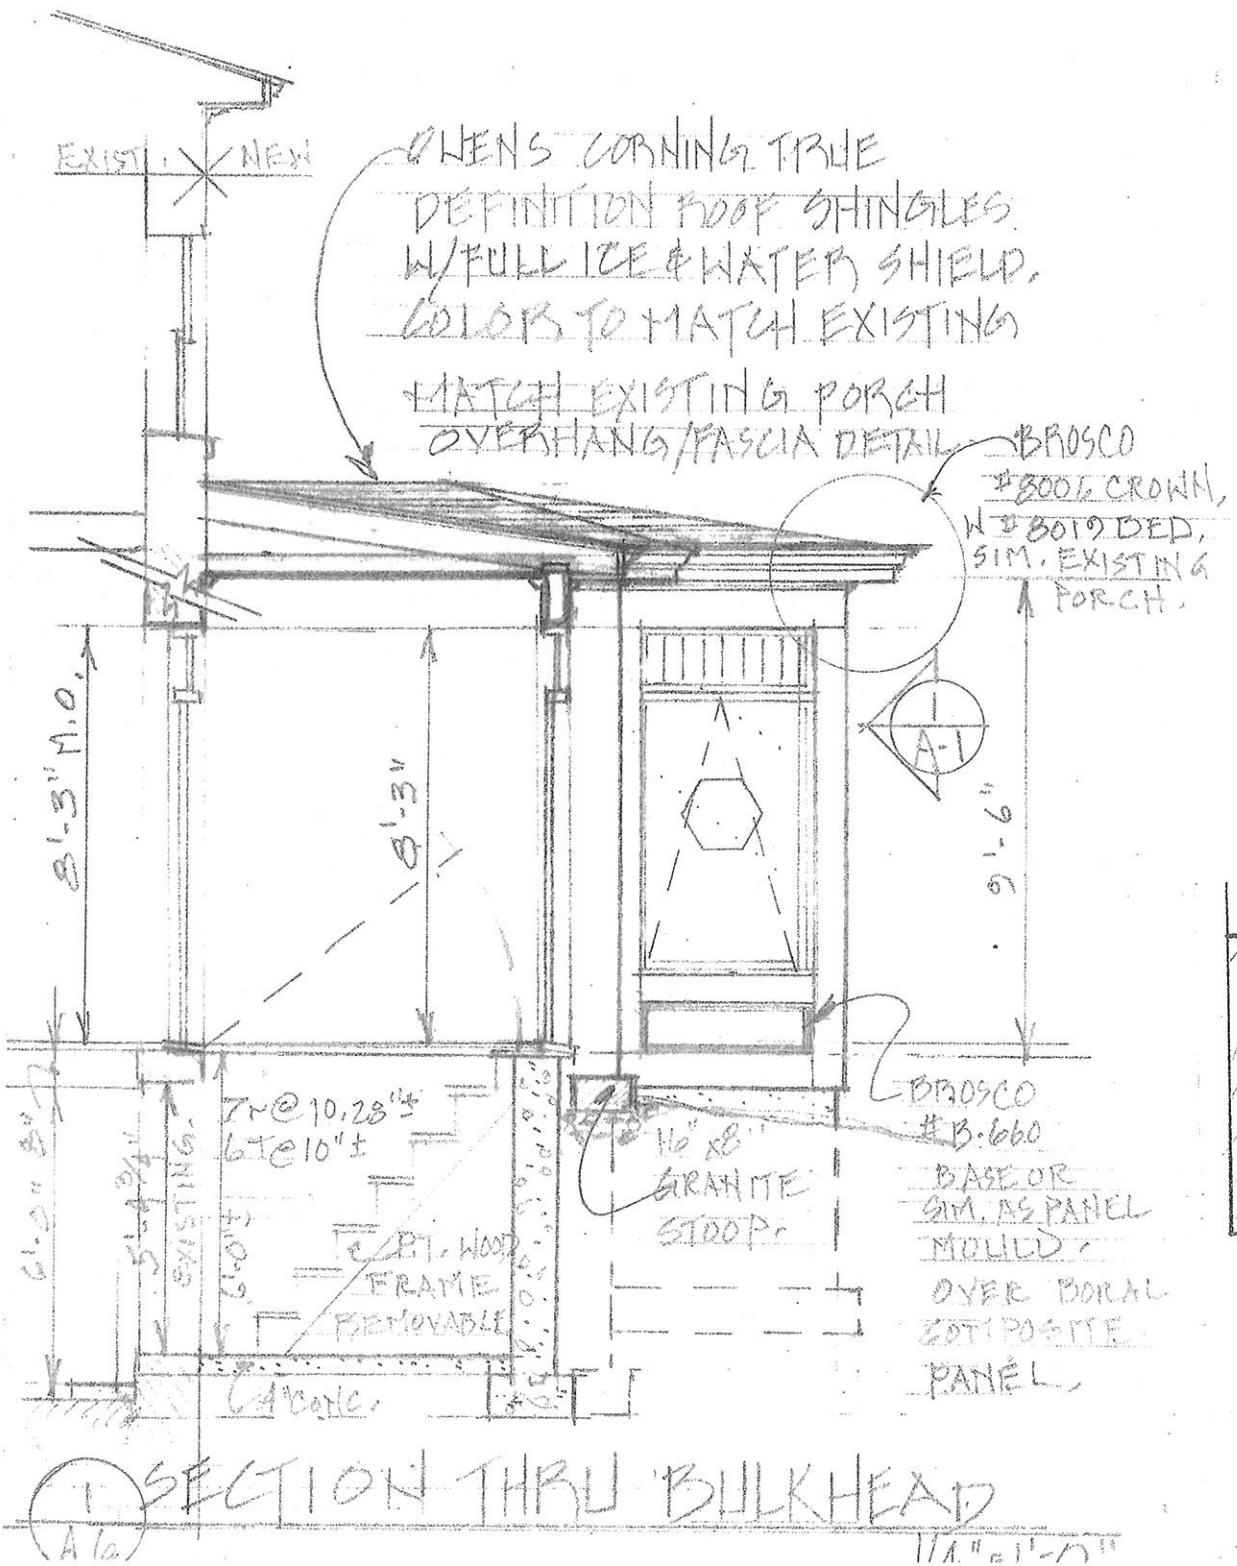 EXIST. NEW
OWENS CORNING TRUE
DEFINITION ROOF SHINGLES
W/FULL ICE & WATER SHIELD.
COLOR TO MATCH EXISTING
MATCH EXISTING PORCH
OVERHANG/FASCIA DETAIL
BROSCO
#8006 CROWN,
W #8019 BED,
SIM. EXISTING
PORCH.
8'-3" M.O.
8'-3"
A-1
9'-6"
7R@10.28"±
6T@10"±
6'-0" 8"
5'-4 3/4"
EXISTING.
6'-0"±
P.T. WOOD
FRAME
REMOVABLE
4" CONC.
16" x 8"
GRANITE
STOOP.
BROSCO
#B-660
BASE OR
SIM. AS PANEL
MOULD.
OVER BORAL
COMPOSITE
PANEL.
1
A
SECTION THRU BULKHEAD
1/4"=1'-0"